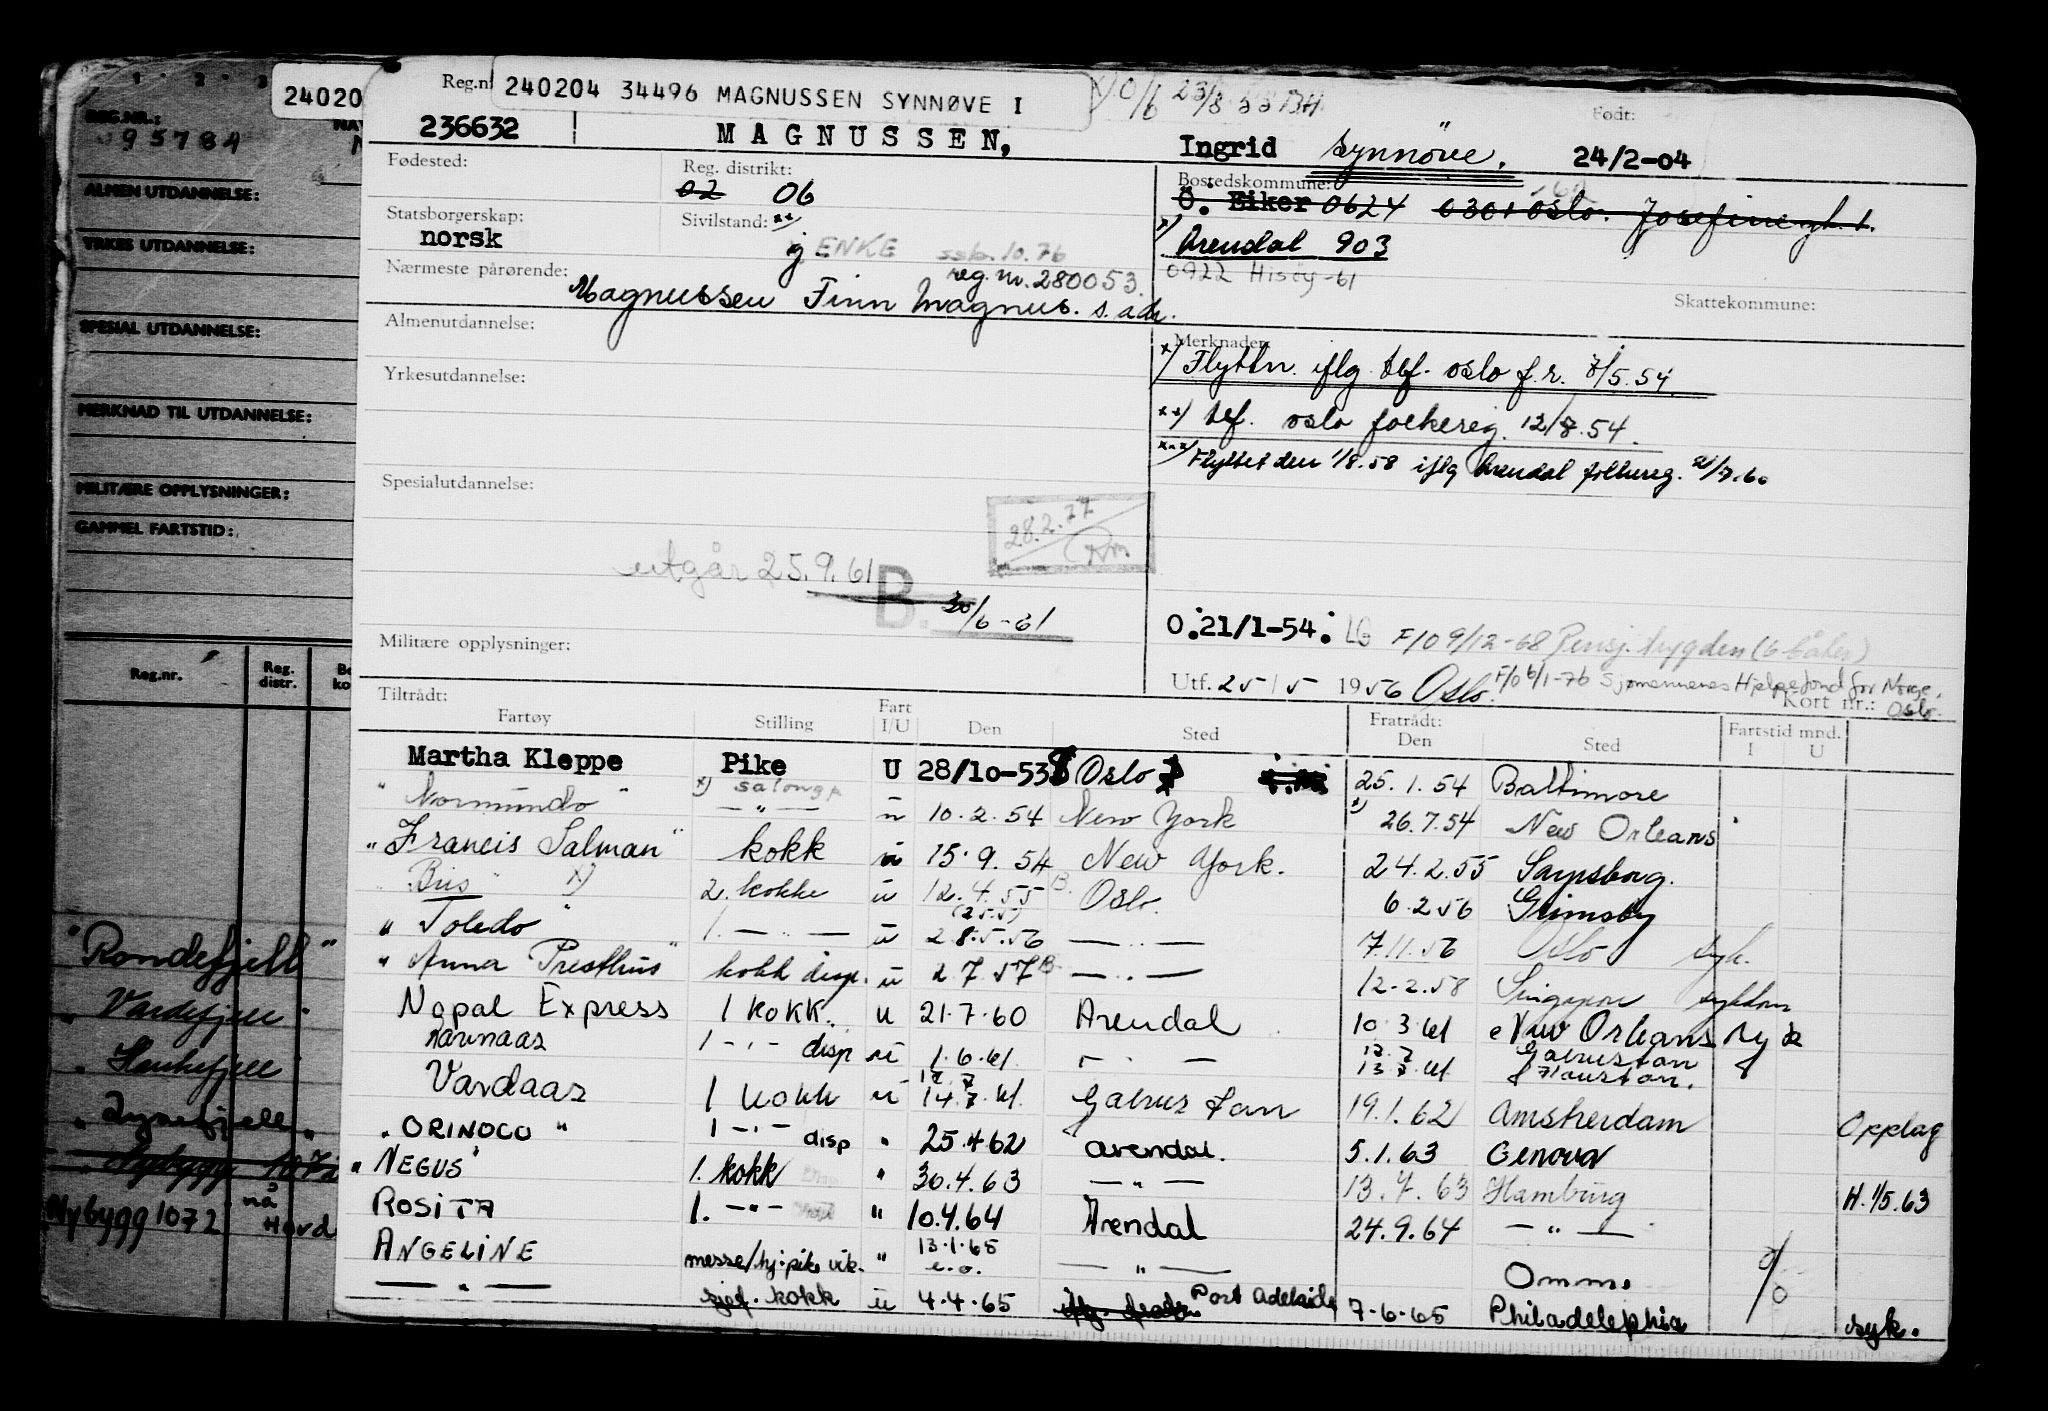 1 · 2 · 3
24020
REG.NR.:
95784
ALMEN UTDANNELSE:
YRKES UTDANNELSE:
SPESIAL UTDANNELSE:
MERKNAD TIL UTDANNELSE:
MILITÆRE OPPLYSNINGER:
GAMMEL FARTSTID:
Reg.nr.
Reg. distr.
"Rondefjell"
" Vardefjell "
" Haukefjell
Nybygg 1072 nå Havd
Reg.nr
240204 34496 MAGNUSSEN SYNNØVE I
Født:
236632 MAGNUSSEN, Ingrid Synnöve. 24/2-04
Fødested:
Reg. distrikt:
02 06
Bostedskommune:
Ö. Eiker 0624 0301 Oslo. Josefinegt.
Statsborgerskap:
norsk
Sivilstand: xx/
g ENKE ssb. 10.76
x/ Arendal 903
0922 Hisøy-61
Nærmeste pårørende:
reg. nr. 280053.
Magnussen Finn Magnus. s. adr.
Skattekommune:
Almenutdannelse:
Merknader:
x/ Flyttn. iflg. tlf. oslo f.r. 7/5.54.
Yrkesutdannelse:
xx/ tlf. oslo folkereg. 12/8.54.
xxx/ Flyttet den 1/8.58 iflg Arendal folkereg. 21/7.60
Spesialutdannelse:
28.2.77
utgår 25.9.61 B. 30/6-61
Militære opplysninger:
O.21/1-54. LG F/O 9/12-68 Pensj. trygden (6 bøker)
Utf. 25/5 1956 Oslo. F/O 6/1-76 Sjømennenes Hjelpefond for Norge, Oslo.
Kort nr.:
Tiltrådt:
Fartøy Stilling Fart I/U Den Sted Fratrådt: Den Sted Fartstid mnd. I U
Martha Kleppe Pike U 28/10-53 Oslo 25.1.54 Baltimore
" Normundo " x) salongp — " — u 10.2.54 New York x) 26.7.54 New Orleans
" Francis Salman " kokk u 15.9.54 New York. 24.2.55 Sarpsborg.
" Bris " x) 2. kokke u 12.4.55 B. Oslo. 6.2.56 Grimsby
(25.5)
" Toledo " 1. — " — u 28.5.56 — " — 7.11.56 Oslo syk.
" Anna Presthus " kokk disp. u 2.7.57 B. — " — 12.2.58 Singapore sykdom
Nopal Express 1 kokk. u 21.7.60 Arendal 10.3.61 New Orleans syk
Farnaas 1 - " - disp u 1.6.61 — " — 12.7 13.7.61 Galveston Houston.
Vardaas 1 kokk u 12.7 14.7.61. Galveston 19.1.62 Amsterdam Opplag
" ORINOCO " 1 — " — disp " 25.4.62 Arendal. 5.1.63 Genova
" NEGUS " 1. kokk " 30.4.63 — " — 13.7.63 Hamburg H. 1/5.63
ROSITA 1. — " — " 10.4.64 Arendal 24.9.64 — " —
ANGELINE messe/hj.pike vik. " 13.1.65 e.o. — " — Omms %
— " — sjef. kokk u 4.4.65 Port Adelaide 7-6-65 Philadelephia syk.